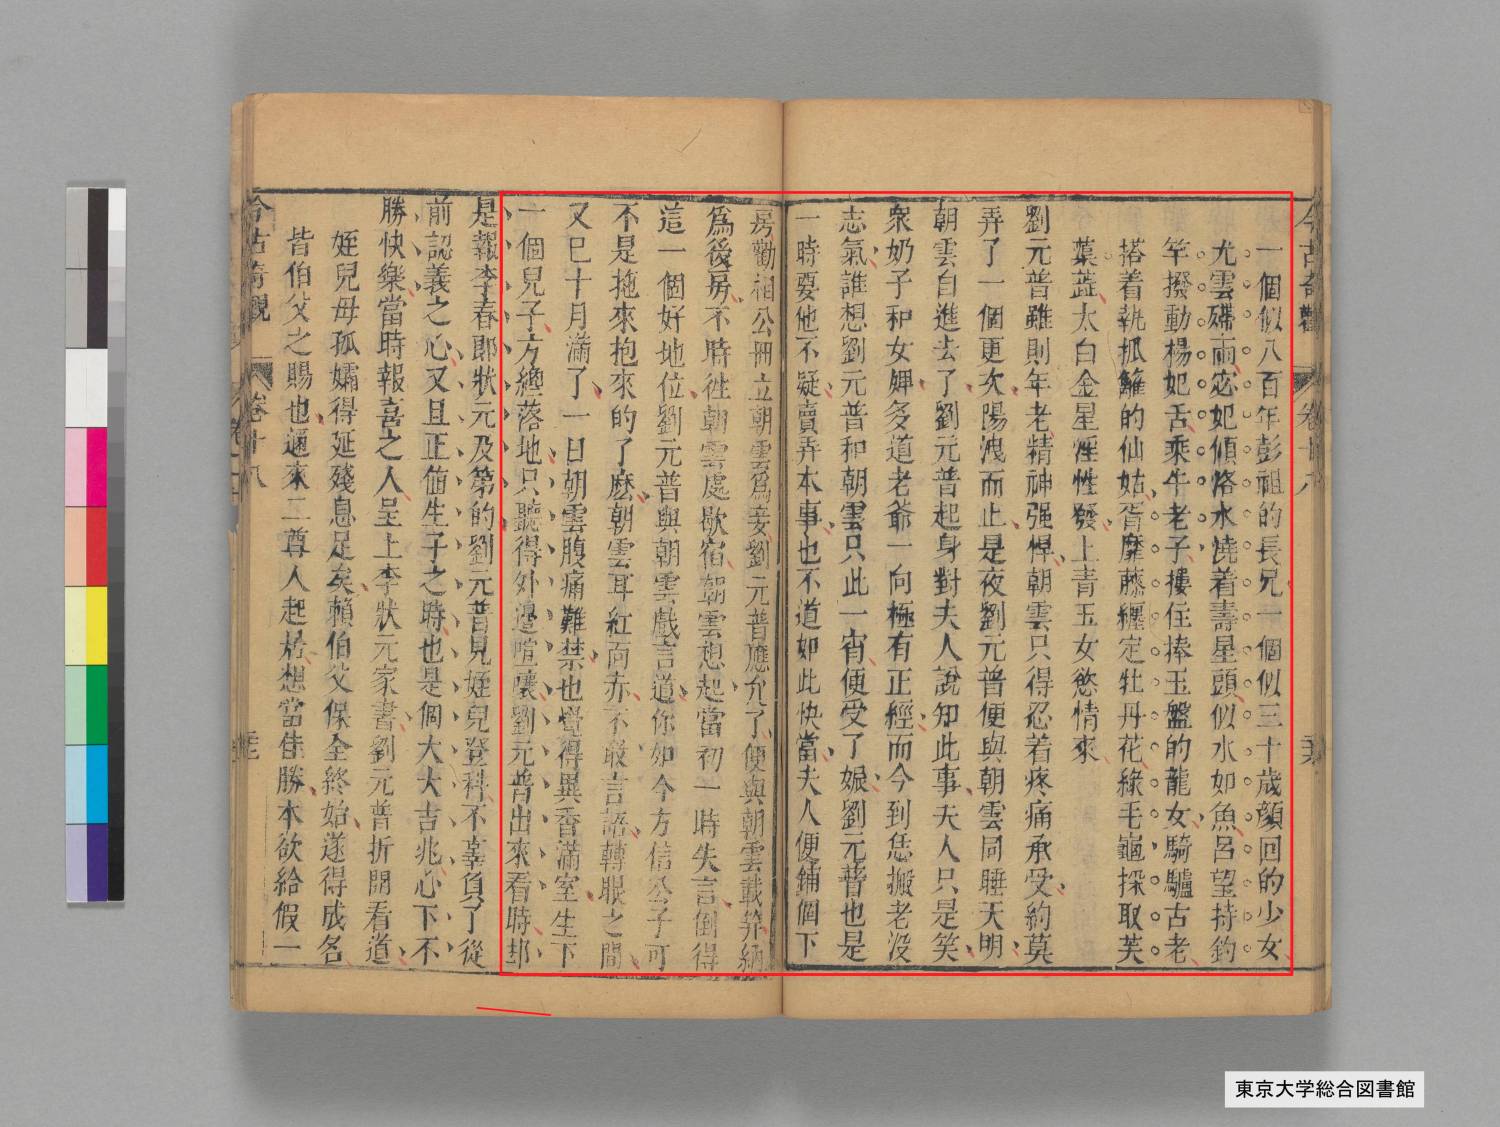 今古奇觀 卷十八
一個似八百年彭祖的長兄一個似三十歲顏回的少女
尤雲殢雨宓妃傾洛水澆着壽星頭似水如魚呂望持釣
竿撥動楊妃舌乘牛老子摟住捧玉盤的龍女騎驢古老
搭着執抓籬的仙姑胥靡藤纏定牡丹花綠毛龜採取芙
蕖蕋太白金星淫性發上青玉女慾情來
劉元普雖則年老精神强悍朝雲只得忍着疼痛承受約莫
弄了一個更次陽洩而止是夜劉元普便與朝雲同睡天明
朝雲自進去了劉元普起身對夫人說知此事夫人只是笑
衆奶子和女婢多道老爺一向極有正經而今到恁搬老沒
志氣誰想劉元普和朝雲只此一宵便受了娠劉元普也是
一時要他不疑賣弄本事也不道如此快當夫人便鋪個下
房勸相公冊立朝雲爲妾劉元普應允了便與朝雲戴笄納
爲後房不時徃朝雲處歇宿朝雲想起當初一時失言倒得
這一個好地位劉元普與朝雲戲言道你如今方信公子可
不是拖來抱來的了麽朝雲耳紅面赤不敢言語轉眼之間
又已十月滿了一日朝雲腹痛難禁也覺得異香滿室生下
一個兒子方纔落地只聽得外邊喧嚷劉元普出來看時却
是報李春郎狀元及第的劉元普見姪兒登科不辜負了從
前認義之心又且正値生子之時也是個大大吉兆心下不
勝快樂當時報喜之人呈上李狀元家書劉元普拆開看道
姪兒母孤孀得延殘息足矣賴伯父保全終始遂得成名
皆伯父之賜也邇來二尊人起居想當佳勝本欲給假一
今古奇觀 卷十八
東京大学総合図書館